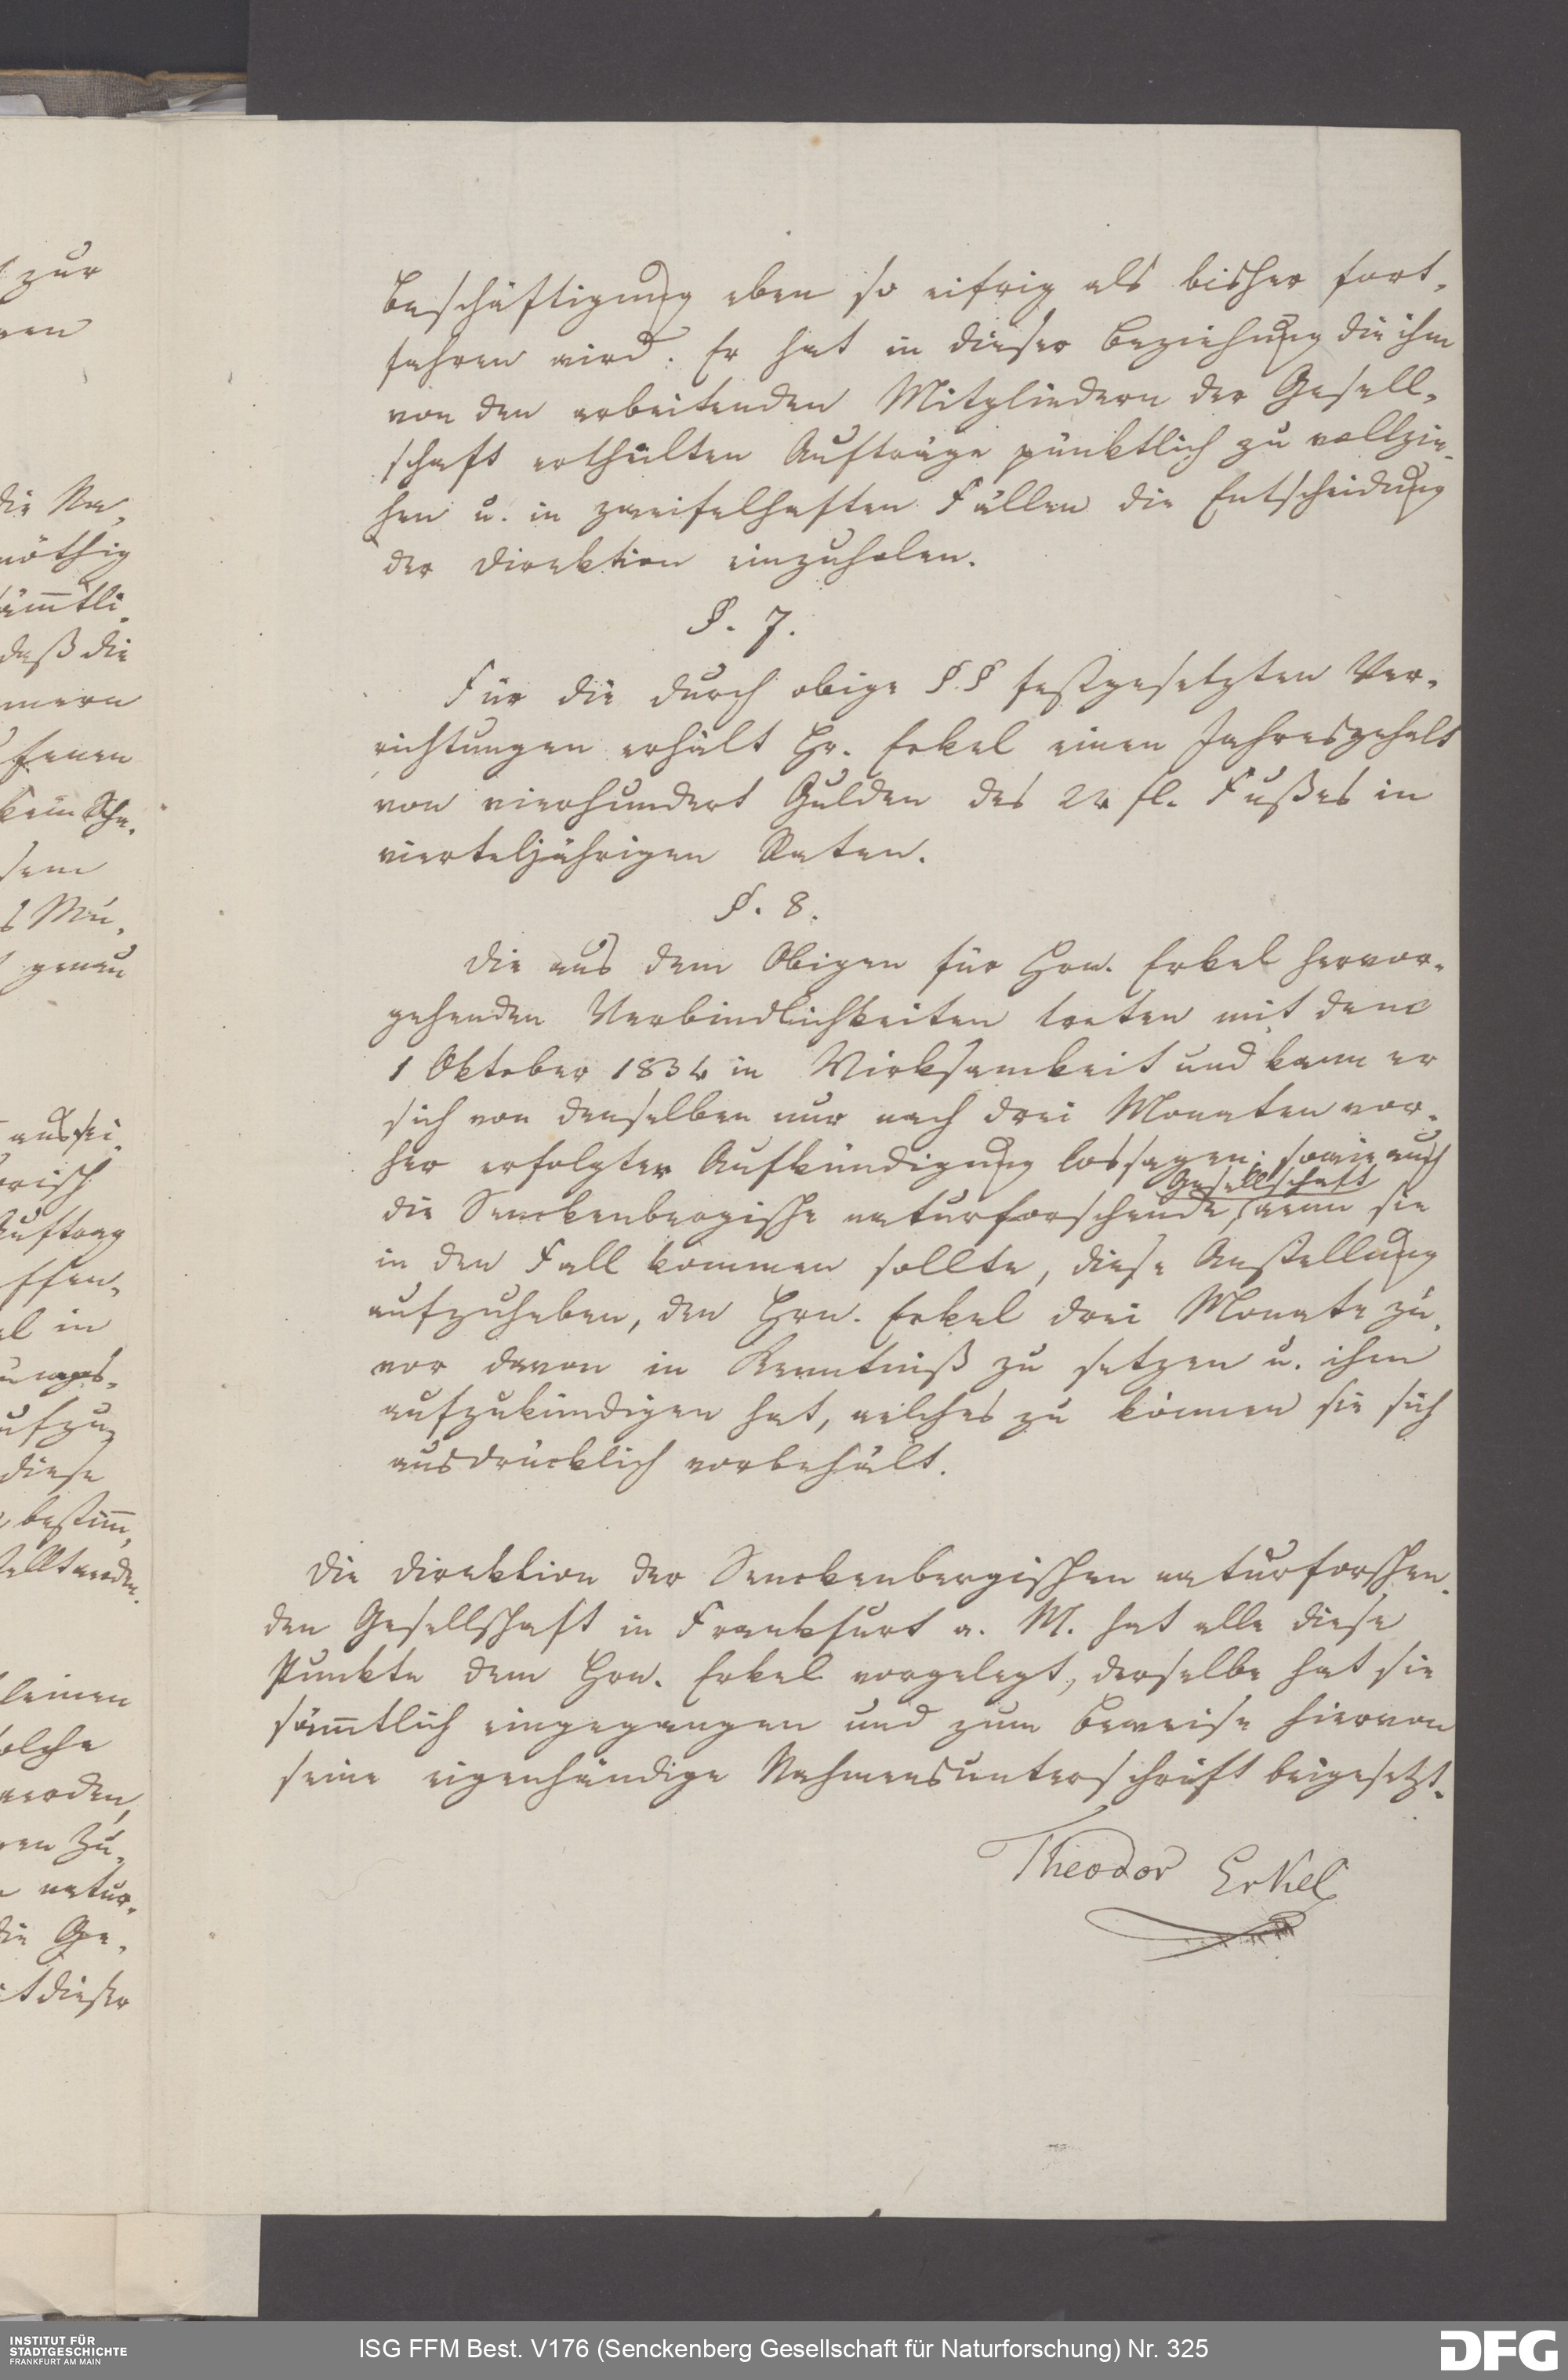 zur
die Na-
nöthig
sämmtli-
daß die
kein Scha-
Mu-
genau
Auftrag
in
diese
bestimm-
kleinen
solche
werden,
Zu-
natur-
die Ge-
dieser
Beschäftigung eben so eifrig als bisher fort-
fahren wird. Er hat in dieser Beziehung die ihm
von den arbeitenden Mitgliedern der Gesell-
schaft ertheilten Aufträge pünktlich zu vollzie-
hen u. in zweifelhaften Fällen die Entscheidung
der Direktion einzuholen.
§. 7.
Für die durch obige §.§ festgesetzten Ver-
richtungen erhält Hr. Erkel einen Jahresgehalt
von vierhundert Gulden des 24 fl. Fußes in
vierteljährigen Raten.
§. 8.
Die aus dem Obigen für Hrn. Erkel hervor-
gehenden Verbindlichkeiten treten mit dem
1 Oktober 1834 in Wirksamkeit und kann er
sich von denselben nur nach drei Monaten vor-
her erfolgter Aufkündigung lossagen; sowie auch
Gesellschaft
die Senckenbergische naturforschende, wenn sie
in den Fall kommen sollte, diese Anstellung
aufzuheben, den Hrn. Erkel drei Monate zu-
vor davon in Kenntniß zu setzen u. ihm
aufzukündigen hat, welches zu können sie sich
ausdrücklich vorbehält.
Die Direktion der Senckenbergischen naturforschen-
den Gesellschaft in Frankfurt a. M. hat alle diese
Punkte dem Hrn. Erkel vorgelegt, derselbe hat sie
sämmtlich eingegangen und zum Beweise hiervon
seine eigenhändige Nahmensunterschrift beigesetzt.
Theodor Erkel
INSTITUT FÜR
STADTGESCHICHTE
FRANKFURT AM MAIN
ISG FFM Best. V176 (Senckenberg Gesellschaft für Naturforschung) Nr. 325
DFG